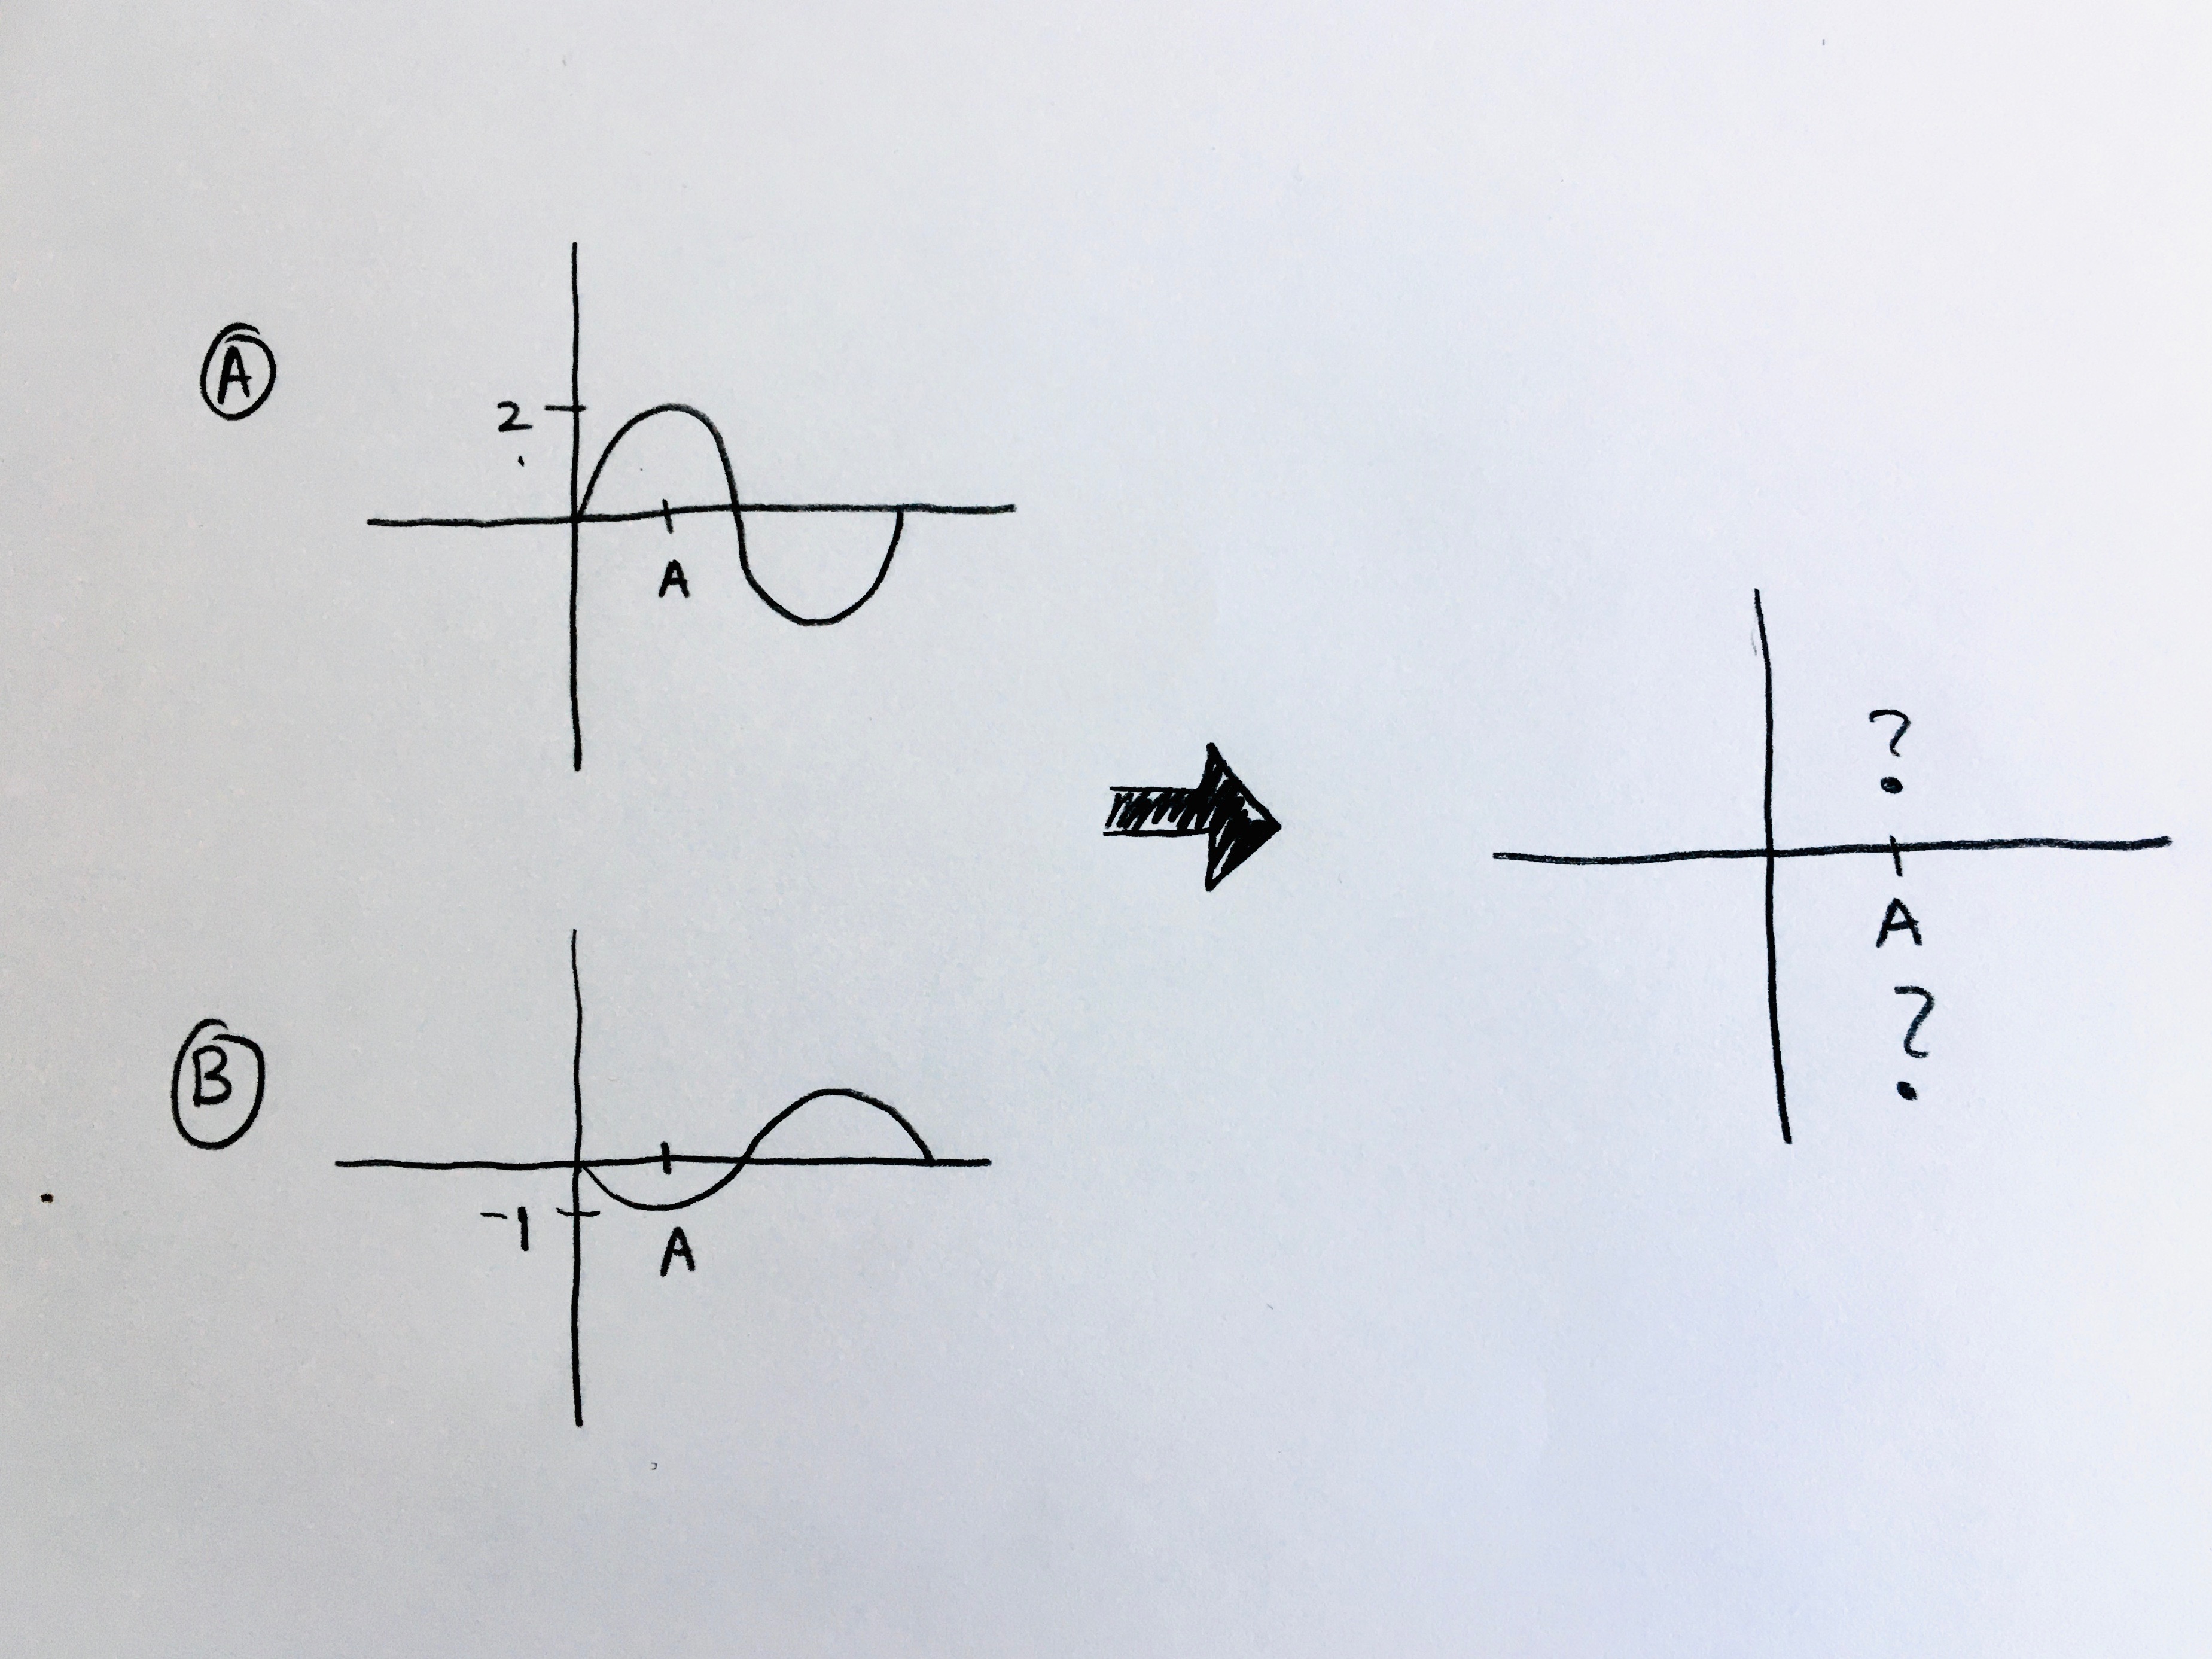 A
2
A
B
-1
A
?
A
?